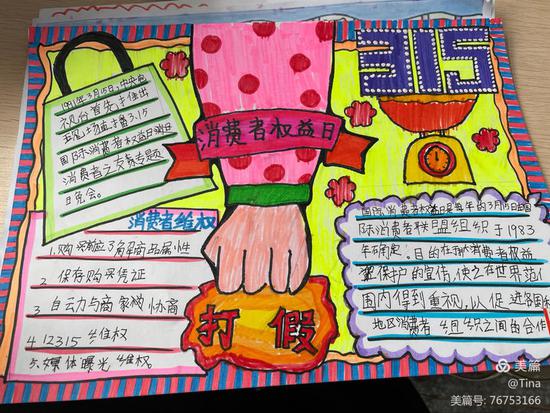 1991年3月15日,中央电
视台首先推出
现场直播3.15
国际消费者权益日
消费者之友专题
晚会。
315
消费者权益日
消费者维权
1.购买前应了解商品属性
2 保存购买凭证
3 自云力与商家协商
4 12315 维权
5.媒体曝光 维权。
打假
国际消费者权益日是每年的3月15日
际消费者联盟组织于1983
年确定,目的在
保护的宣传,使之在世界范
围内得到重视,以促进各国
地区消费者组织之间的合作
美篇
@Tina
美篇号: 76753166